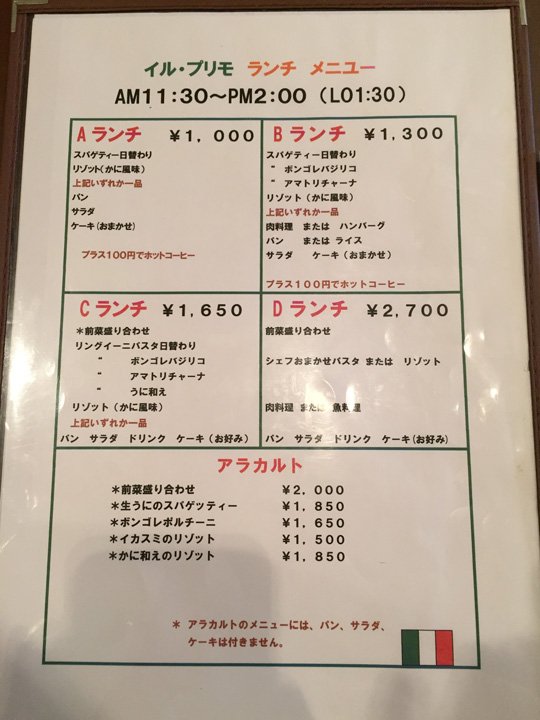 イル・プリモ ランチ メニユー
AM11:30～PM2:00（LO1:30）
Aランチ ￥1,000
スパゲティー日替わり
リゾット(かに風味)
上記いずれか一品
パン
サラダ
ケーキ(おまかせ)
プラス100円でホットコーヒー
Bランチ ￥1,300
スパゲティー日替わり
〃 ボンゴレバジリコ
〃 アマトリチャーナ
リゾット（かに風味）
上記いずれか一品
肉料理 または ハンバーグ
パン または ライス
サラダ ケーキ（おまかせ）
プラス100円でホットコーヒー
Cランチ ￥1,650
＊前菜盛り合わせ
リングイーニパスタ日替わり
〃 ボンゴレバジリコ
〃 アマトリチャーナ
〃 うに和え
リゾット（かに風味）
上記いずれか一品
パン サラダ ドリンク ケーキ（お好み）
Dランチ ￥2,700
前菜盛り合わせ
シェフおまかせパスタ または リゾット
肉料理 または 魚料理
パン サラダ ドリンク ケーキ(お好み)
アラカルト
＊前菜盛り合わせ ￥2,000
＊生うにのスパゲッティー ￥1,850
＊ボンゴレポルチーニ ￥1,650
＊イカスミのリゾット ￥1,500
＊かに和えのリゾット ￥1,850
＊ アラカルトのメニューには、パン、サラダ、
ケーキは付きません。